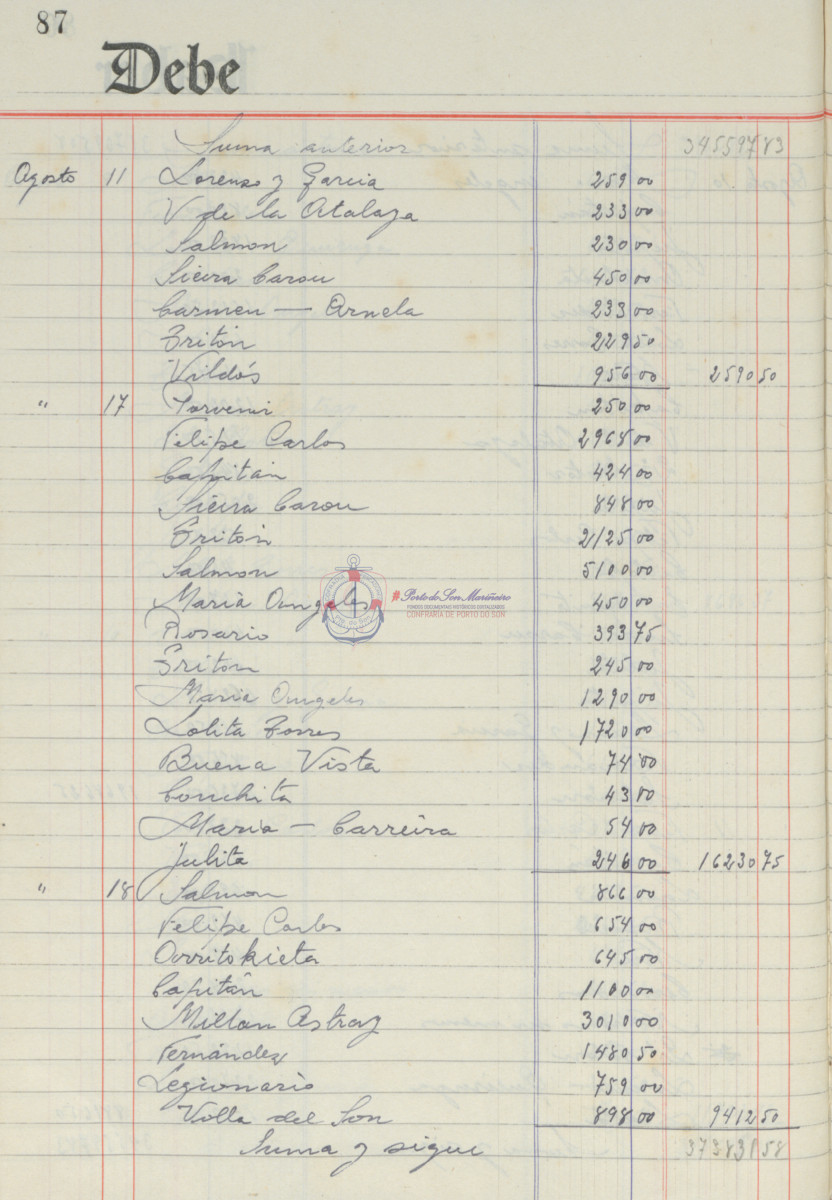 87
Debe
Suma anterior 345597 83
Agosto 11 Lorenzo y Garcia 259 00
V de la Atalaya 233 00
Salmon 230 00
Sieira Carou 450 00
Carmen — Arnela 233 00
Triton 229 50
Vildós 956 00 2590 50
" 17 Porvenir 250 00
Felipe Carlos 2968 00
Capitán 424 00
Sieira Carou 848 00
Triton 2125 00
Salmon 5100 00
Maria Angeles 450 00
Rosario 393 75
Triton 245 00
Maria Angeles 1290 00
Lolita Torres 1720 00
Buena Vista 74 00
Conchita 43 00
Maria — Carreira 54 00
Julita 246 00 16230 75
" 18 Salmon 866 00
Felipe Carlos 654 00
Arritokieta 645 00
Capitán 1100 00
Millan Astray 3010 00
Fernández 1480 50
Legionario 759 00
Volla del Son 898 00 9412 50
Suma y sigue 373831 58
#Porto do Son Mariñeiro
FONDOS DOCUMENTAIS HISTÓRICOS DIXITALIZADOS
CONFRARÍA DE PORTO DO SON